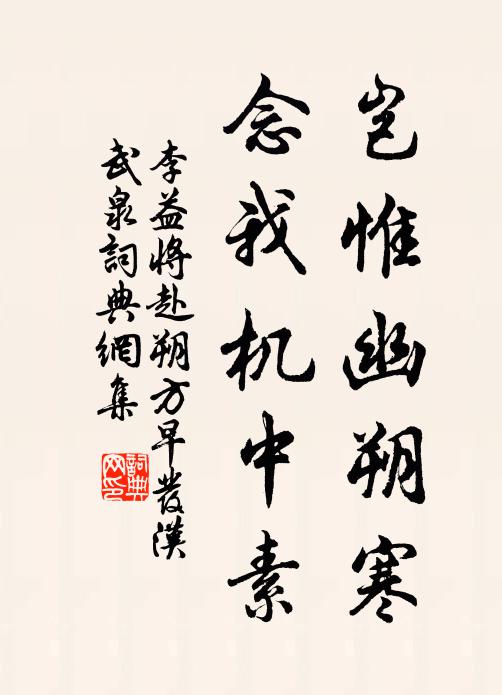 岂惟幽朔寒
念我机中素
李益将赴朔方早發漢
武泉詞典網集
詞典网印